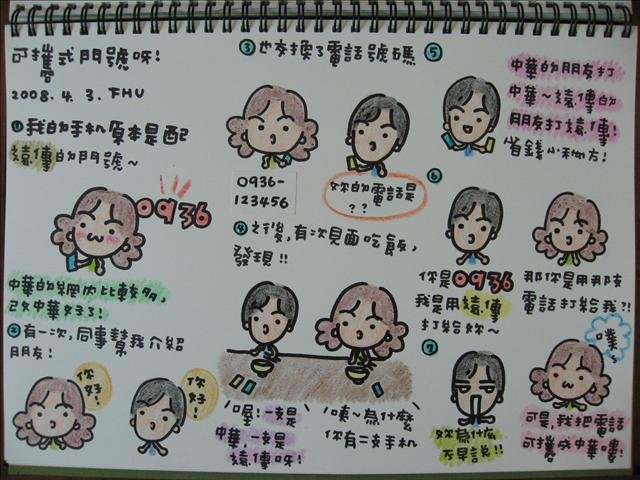 可攜式門號呀!
2008.4.3. FHU
①我的手机原本是配
遠傳的門號~
0936
中華的網內比較多,
改中華好了!
②有一次,同事幫我介紹
朋友!
你好!
你好!
③也交換了電話號碼
0936-
123456
妳的電話是
??
④之後,有次見面吃飯,
發現!!
喔!一支是
中華,一支是
遠傳呀!
咦~為什麼
你有二支手机
⑤
中華的朋友打
中華~遠傳的
朋友打遠傳!
省錢小秘方!
⑥
你是0936
我是用遠傳
打給妳~
那你是用那支
電話打給我?!
⑦
妳為什麼
不早說!!
噗
可是,我把電話
可攜成中華嘍!